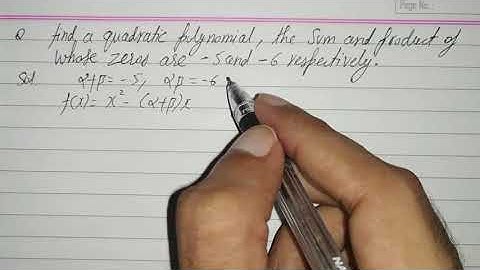 Page No.:
Q find a quadratic polynomial, the sum and product of
whose zeros are -5 and -6 respectively.
Sol α+β = -5, αβ = -6
f(x) = x² - (α+β)x